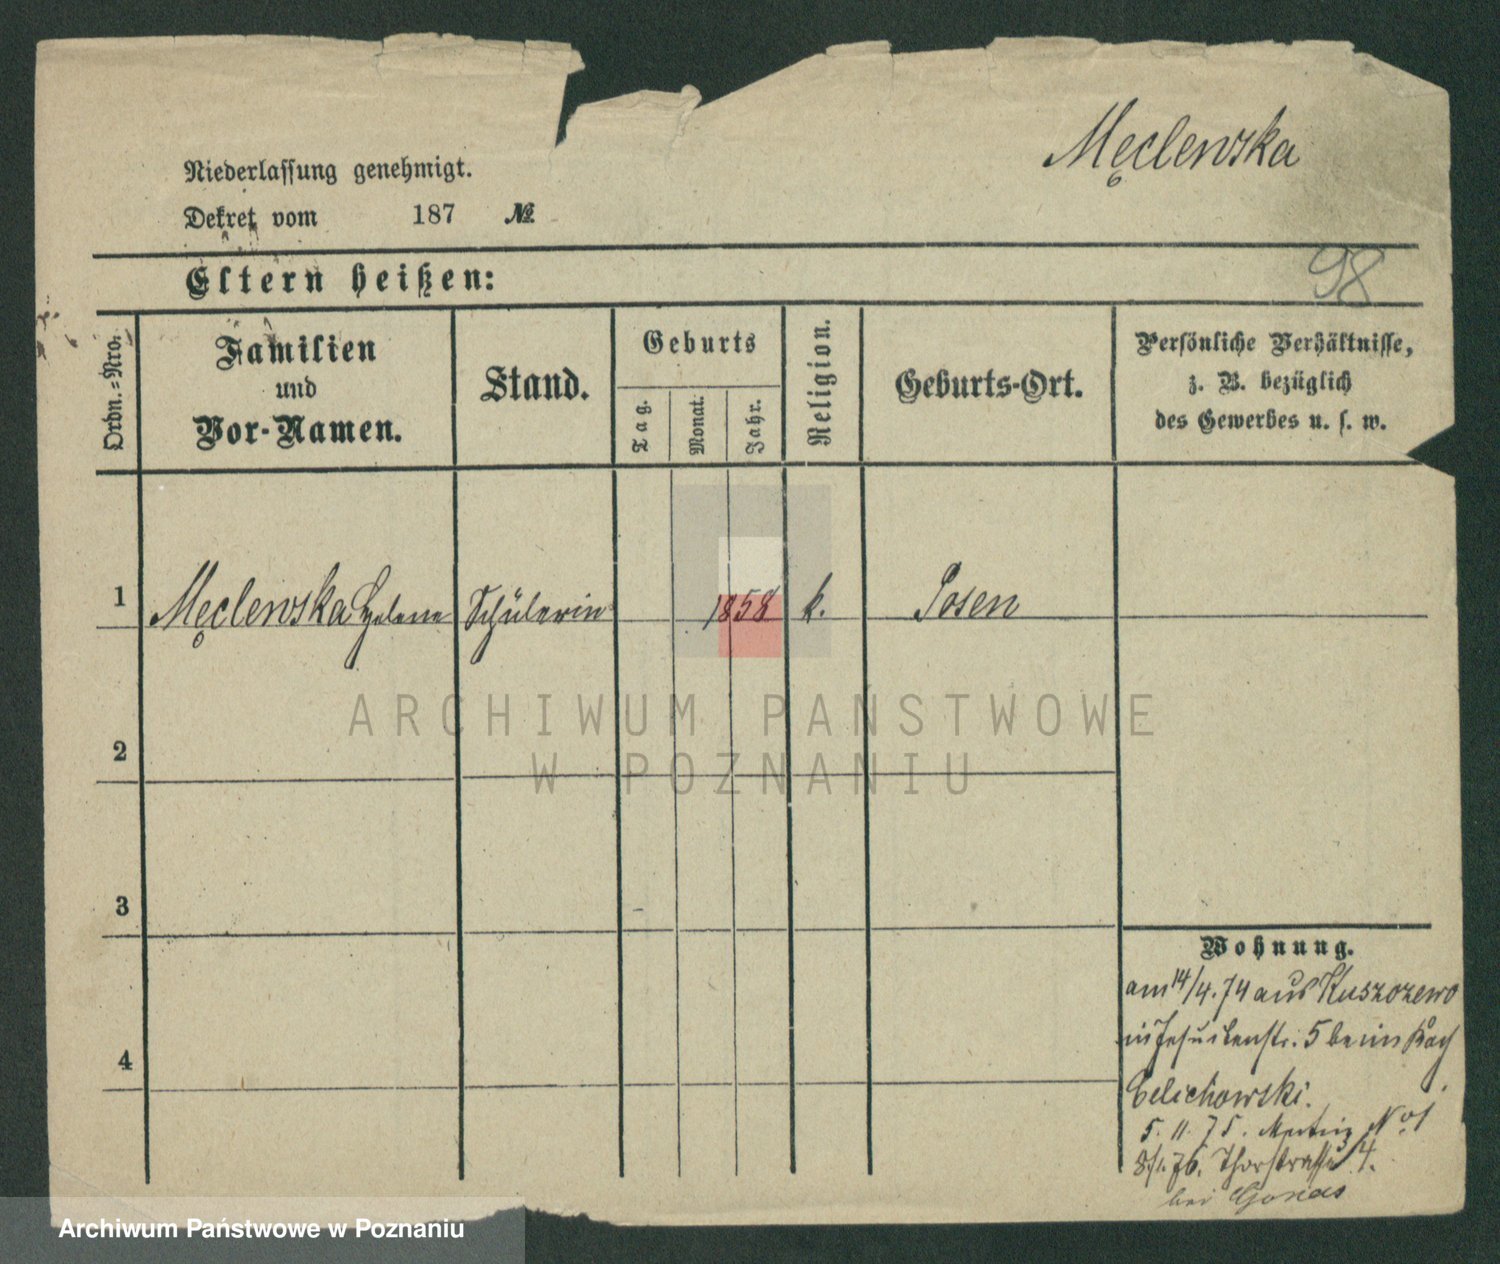 Męclewska
Niederlassung genehmigt.
Dekret vom 187 №
98
Eltern heißen:
Ordn.=Nro.
Familien
und
Vor-Namen.
Stand.
Geburts
Tag.
Monat.
Jahr.
Religion.
Geburts-Ort.
Persönliche Verhältnisse,
z. B. bezüglich
des Gewerbes u. s. w.
1 Męclewska Helene Schülerin 1858 k. Posen
ARCHIWUM PAŃSTWOWE
W POZNANIU
2
3
4
Wohnung.
am 14/4.74 aus Kuszozewo
in Jesuitenstr. 5 beim
Celichowski.
5. 11. 75. Martin No 1
8/1.76. Thorstraße 4.
bei
Archiwum Państwowe w Poznaniu